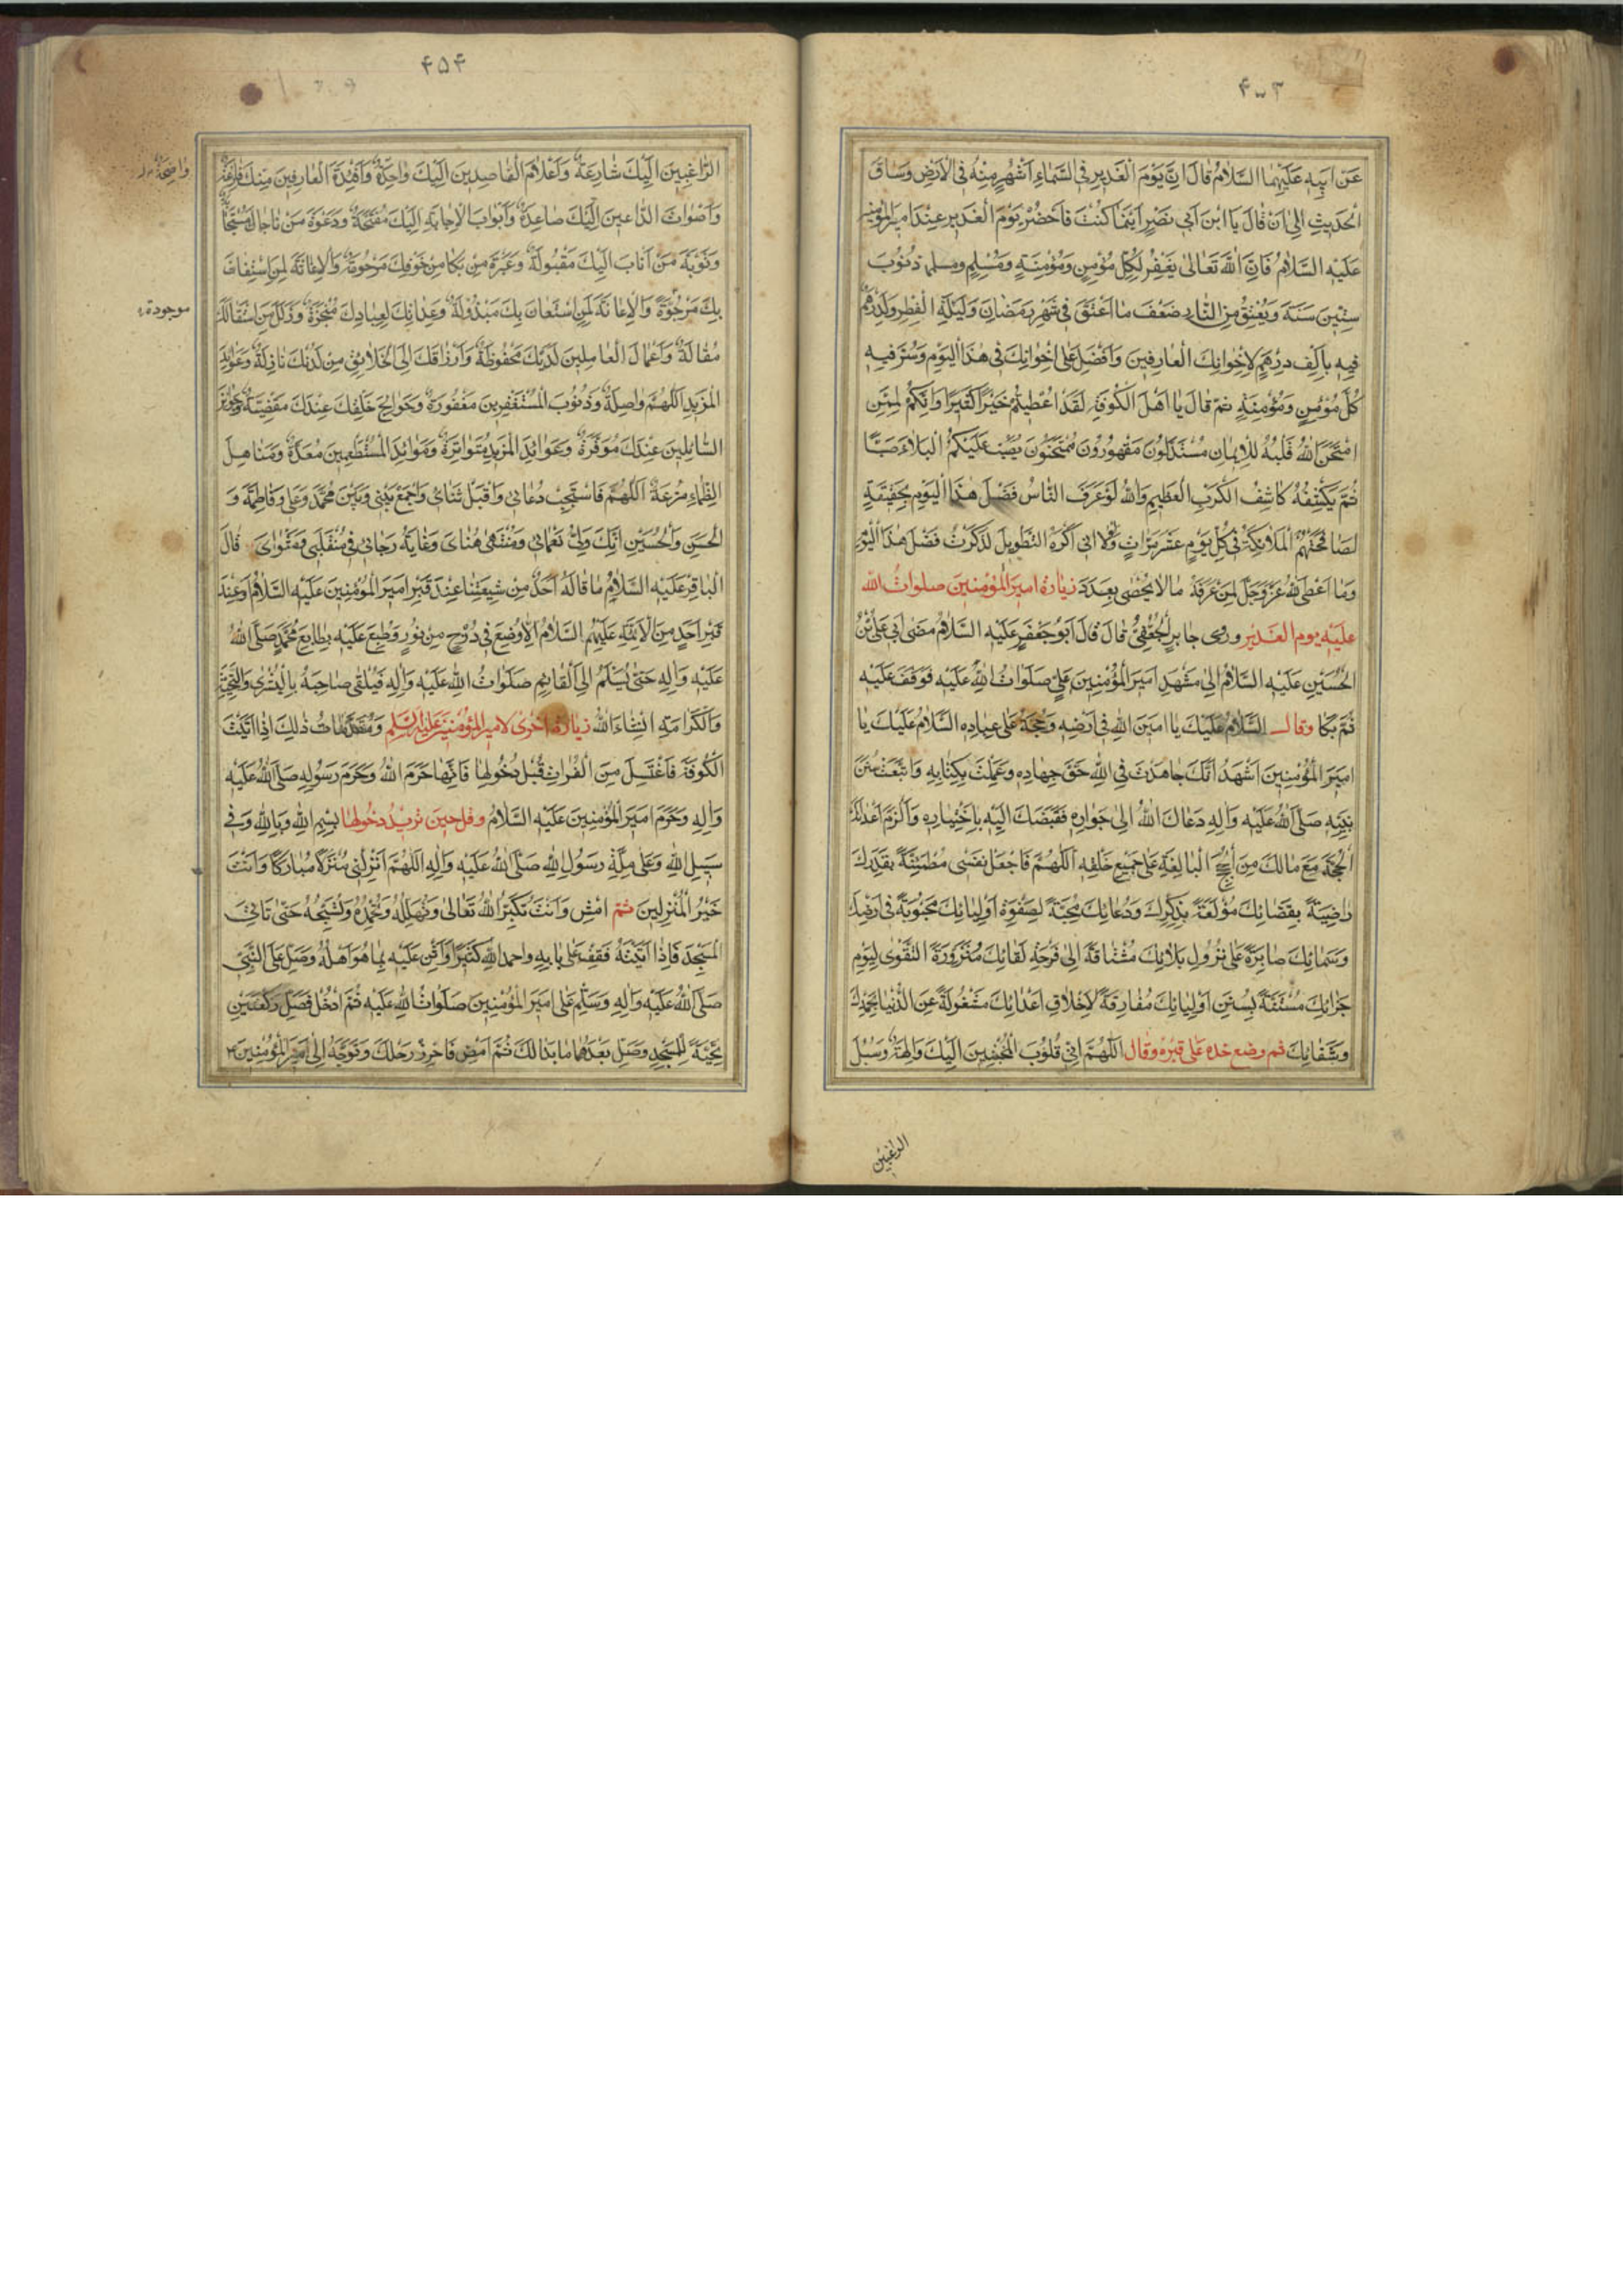 ۴۵۳
عَنْ اَبِيهِ عَلَيْهِمَا السَّلَامُ قَالَ اِنَّ يَوْمَ الْغَدِيرِ فِي السَّمَاءِ اَشْهَرُ مِنْهُ فِي الْاَرْضِ وَسَاقَ
الْحَدِيثَ اِلىٰ اَنْ قَالَ يَا ابْنَ اَبِي نَصْرٍ اَيْنَمَا كُنْتَ فَاحْضُرْ يَوْمَ الْغَدِيرِ عِنْدَ اَمِيرِ الْمُؤْمِنِينَ
عَلَيْهِ السَّلَامُ فَاِنَّ اللهَ تَعَالىٰ يَغْفِرُ لِكُلِّ مُؤْمِنٍ وَمُؤْمِنَةٍ وَمُسْلِمٍ ومسلمة ذُنُوبَ
سِتِّينَ سَنَةً وَيُعْتِقُ مِنَ النَّارِ ضِعْفَ مَا اَعْتَقَ فِي شَهْرِ رَمَضَانَ وَلَيْلَةِ الْفِطْرِ وَلَدِرْهَمٌ
فِيهِ بِاَلْفِ دِرْهَمٍ لِاِخْوَانِكَ الْعَارِفِينَ وَاَفْضِلْ عَلىٰ اِخْوَانِكَ فِي هٰذَا الْيَوْمِ وَسُرَّ فِيهِ
كُلَّ مُؤْمِنٍ وَمُؤْمِنَةٍ ثُمَّ قَالَ يَا اَهْلَ الْكُوفَةِ لَقَدْ اُعْطِيتُمْ خَيْرًا كَثِيرًا وَاِنَّكُمْ لَمِمَّنْ
امْتَحَنَ اللهُ قَلْبَهُ لِلْاِيمَانِ مُسْتَذَلُّونَ مَقْهُورُونَ مُمْتَحَنُونَ يُصَبُّ عَلَيْكُمُ الْبَلَاءُ صَبًّا
ثُمَّ يَكْشِفُهُ كَاشِفُ الْكَرْبِ الْعَظِيمِ وَاللهِ لَوْ عَرَفَ النَّاسُ فَضْلَ هٰذَا الْيَوْمِ بِحَقِيقَتِهِ
لَصَافَحَتْهُمُ الْمَلَائِكَةُ فِي كُلِّ يَوْمٍ عَشْرَ مَرَّاتٍ وَلَوْلَا اَنِّي اَكْرَهُ التَّطْوِيلَ لَذَكَرْتُ فَضْلَ هٰذَا الْيَوْمِ
وَمَا اَعْطَى اللهُ عَزَّ وَجَلَّ لِمَنْ عَرَفَهُ مَا لَا يُحْصىٰ بِعَدَدٍ زيارة امير المؤمنين صلوات الله
عليه يوم الغدير وروى جابر الجُعْفِيُّ قَالَ قَالَ اَبُو جَعْفَرٍ عَلَيْهِ السَّلَامُ مَضىٰ اَبِي عَلِيُّ بْنُ
الْحُسَيْنِ عَلَيْهِ السَّلَامُ اِلىٰ مَشْهَدِ اَمِيرِ الْمُؤْمِنِينَ عَلِيٍّ صَلَوَاتُ اللهِ عَلَيْهِ فَوَقَفَ عَلَيْهِ
ثُمَّ بَكَا وقال السَّلَامُ عَلَيْكَ يَا اَمِينَ اللهِ فِي اَرْضِهِ وَحُجَّتَهُ عَلىٰ عِبَادِهِ السَّلَامُ عَلَيْكَ يَا
اَمِيرَ الْمُؤْمِنِينَ اَشْهَدُ اَنَّكَ جَاهَدْتَ فِي اللهِ حَقَّ جِهَادِهِ وَعَمِلْتَ بِكِتَابِهِ وَاتَّبَعْتَ سُنَنَ
نَبِيِّهِ صَلَّى اللهُ عَلَيْهِ وَاٰلِهِ دَعَاكَ اللهُ اِلىٰ جَوَارِهِ فَقَبَضَكَ اِلَيْهِ بِاخْتِيَارِهِ وَاَلْزَمَ اَعْدَائَكَ
الْحُجَّةَ مَعَ مَالَكَ مِنَ الْحُجَجِ الْبَالِغَةِ عَلىٰ جَمِيعِ خَلْقِهِ اَللّٰهُمَّ فَاجْعَلْ نَفْسِي مُطْمَئِنَّةً بِقَدَرِكَ
رَاضِيَةً بِقَضَائِكَ مُولَعَةً بِذِكْرِكَ وَدُعَائِكَ مُحِبَّةً لِصَفْوَةِ اَوْلِيَائِكَ مَحْبُوبَةً فِي اَرْضِكَ
وَسَمَائِكَ صَابِرَةً عَلىٰ نُزُولِ بَلَائِكَ مُشْتَاقَةً اِلىٰ فَرْحَةِ لِقَائِكَ مُتَزَوِّدَةً التَّقْوىٰ لِيَوْمِ
جَزَائِكَ مُسْتَنَّةً بِسُنَنِ اَوْلِيَائِكَ مُفَارِقَةً لِاَخْلَاقِ اَعْدَائِكَ مَشْغُولَةً عَنِ الدُّنْيَا بِحَمْدِكَ
وَثَنَائِكَ ثم وضع خده على قبره وقال اَللّٰهُمَّ اِنَّ قُلُوبَ الْمُخْبِتِينَ اِلَيْكَ وَالِهَةٌ وَسُبُلَ
الراغبين
۴۵۴
الرَّاغِبِينَ اِلَيْكَ شَارِعَةٌ وَاَعْلَامَ الْقَاصِدِينَ اِلَيْكَ وَاضِحَةٌ وَاَفْئِدَةَ الْعَارِفِينَ مِنْكَ فَازِعَةٌ
واضحة
وَاَصْوَاتَ الدَّاعِينَ اِلَيْكَ صَاعِدَةٌ وَاَبْوَابَ الْاِجَابَةِ اِلَيْكَ مُفَتَّحَةٌ وَدَعْوَةَ مَنْ نَاجَاكَ مُسْتَجَابَةٌ
وَتَوْبَةَ مَنْ اَنَابَ اِلَيْكَ مَقْبُولَةٌ وَعَبْرَةَ مَنْ بَكَا مِنْ خَوْفِكَ مَرْحُومَةٌ وَالْاِغَاثَةَ لِمَنِ اسْتَغَاثَ
بِكَ مَرْجُوَّةٌ وَالْاِعَانَةَ لِمَنِ اسْتَعَانَ بِكَ مَبْذُولَةٌ وَعِدَاتِكَ لِعِبَادِكَ مُنْجَزَةٌ وَزَلَلَ مَنِ اسْتَقَالَكَ
موجودة
مُقَالَةٌ وَاَعْمَالَ الْعَامِلِينَ لَدَيْكَ مَحْفُوظَةٌ وَاَرْزَاقَكَ اِلَى الْخَلَائِقِ مِنْ لَدُنْكَ نَازِلَةٌ وَعَوَائِدَ
الْمَزِيدِ اللّٰهُمَّ وَاصِلَةٌ وَذُنُوبَ الْمُسْتَغْفِرِينَ مَغْفُورَةٌ وَحَوَائِجَ خَلْقِكَ عِنْدَكَ مَقْضِيَّةٌ وَجَوَائِزَ
السَّائِلِينَ عِنْدَكَ مُوَفَّرَةٌ وَعَوَائِدَ الْمَزِيدِ مُتَوَاتِرَةٌ وَمَوَائِدَ الْمُسْتَطْعِمِينَ مُعَدَّةٌ وَمَنَاهِلَ
الظِّمَاءِ مُتْرَعَةٌ اَللّٰهُمَّ فَاسْتَجِبْ دُعَائِي وَاقْبَلْ ثَنَائِي وَاجْمَعْ بَيْنِي وَبَيْنَ مُحَمَّدٍ وَعَلِيٍّ وَفَاطِمَةَ وَ
الْحَسَنِ وَالْحُسَيْنِ اِنَّكَ وَلِيُّ نَعْمَائِي وَمُنْتَهىٰ مُنَايَ وَغَايَةُ رَجَائِي فِي مُنْقَلَبِي وَمَثْوَايَ قَالَ
الْبَاقِرُ عَلَيْهِ السَّلَامُ مَا قَالَهُ اَحَدٌ مِنْ شِيعَتِنَا عِنْدَ قَبْرِ اَمِيرِ الْمُؤْمِنِينَ عَلَيْهِ السَّلَامُ اَوْ عِنْدَ
قَبْرِ اَحَدٍ مِنَ الْاَئِمَّةِ عَلَيْهِمُ السَّلَامُ اِلَّا وُضِعَ فِي دَرْجٍ مِنْ نُورٍ وَطُبِعَ عَلَيْهِ بِطَابِعِ مُحَمَّدٍ صَلَّى اللهُ
عَلَيْهِ وَاٰلِهِ حَتّىٰ يُسَلَّمَ اِلَى الْقَائِمِ صَلَوَاتُ اللهِ عَلَيْهِ وَاٰلِهِ فَيُلْقىٰ صَاحِبَهُ بِالْبُشْرىٰ وَالتَّحِيَّةِ
وَالْكَرَامَةِ انْشَاءَ اللهُ زيارة اخرى لامير المؤمنين عليه السلم وَمُقَدَّمَاتُ ذٰلِكَ اِذَا اَتَيْتَ
الْكُوفَةَ فَاغْتَسِلْ مِنَ الْفُرَاتِ قَبْلَ دُخُولِهَا فَاِنَّهَا حَرَمُ اللهِ وَحَرَمُ رَسُولِهِ صَلَّى اللهُ عَلَيْهِ
وَاٰلِهِ وَحَرَمُ اَمِيرِ الْمُؤْمِنِينَ عَلَيْهِ السَّلَامُ وقل حين تريد دخولها بِسْمِ اللهِ وَبِاللهِ وَفِي
سَبِيلِ اللهِ وَعَلىٰ مِلَّةِ رَسُولِ اللهِ صَلَّى اللهُ عَلَيْهِ وَاٰلِهِ اَللّٰهُمَّ اَنْزِلْنِي مُنْزَلًا مُبَارَكًا وَاَنْتَ
خَيْرُ الْمُنْزِلِينَ ثم امْشِ وَاَنْتَ تُكَبِّرُ اللهَ تَعَالىٰ وَتُهَلِّلُهُ وَتُحَمِّدُهُ وَتُسَبِّحُهُ حَتّىٰ تَأْتِيَ
الْمَسْجِدَ فَاِذَا اَتَيْتَهُ فَقِفْ عَلىٰ بَابِهِ واحمد اللهَ كَثِيرًا وَاَثْنِ عَلَيْهِ بِمَا هُوَ اَهْلُهُ وَصَلِّ عَلَى النَّبِيِّ
صَلَّى اللهُ عَلَيْهِ وَاٰلِهِ وَسَلِّمْ عَلىٰ اَمِيرِ الْمُؤْمِنِينَ صَلَوَاتُ اللهِ عَلَيْهِ ثُمَّ ادْخُلْ فَصَلِّ رَكْعَتَيْنِ
تَحِيَّةً لِلْمَسْجِدِ وَصَلِّ بَعْدَهُمَا مَا بَدَا لَكَ ثُمَّ امْضِ فَاَحْرِزْ رَحْلَكَ وَتَوَجَّهْ اِلىٰ اَمِيرِ الْمُؤْمِنِينَ